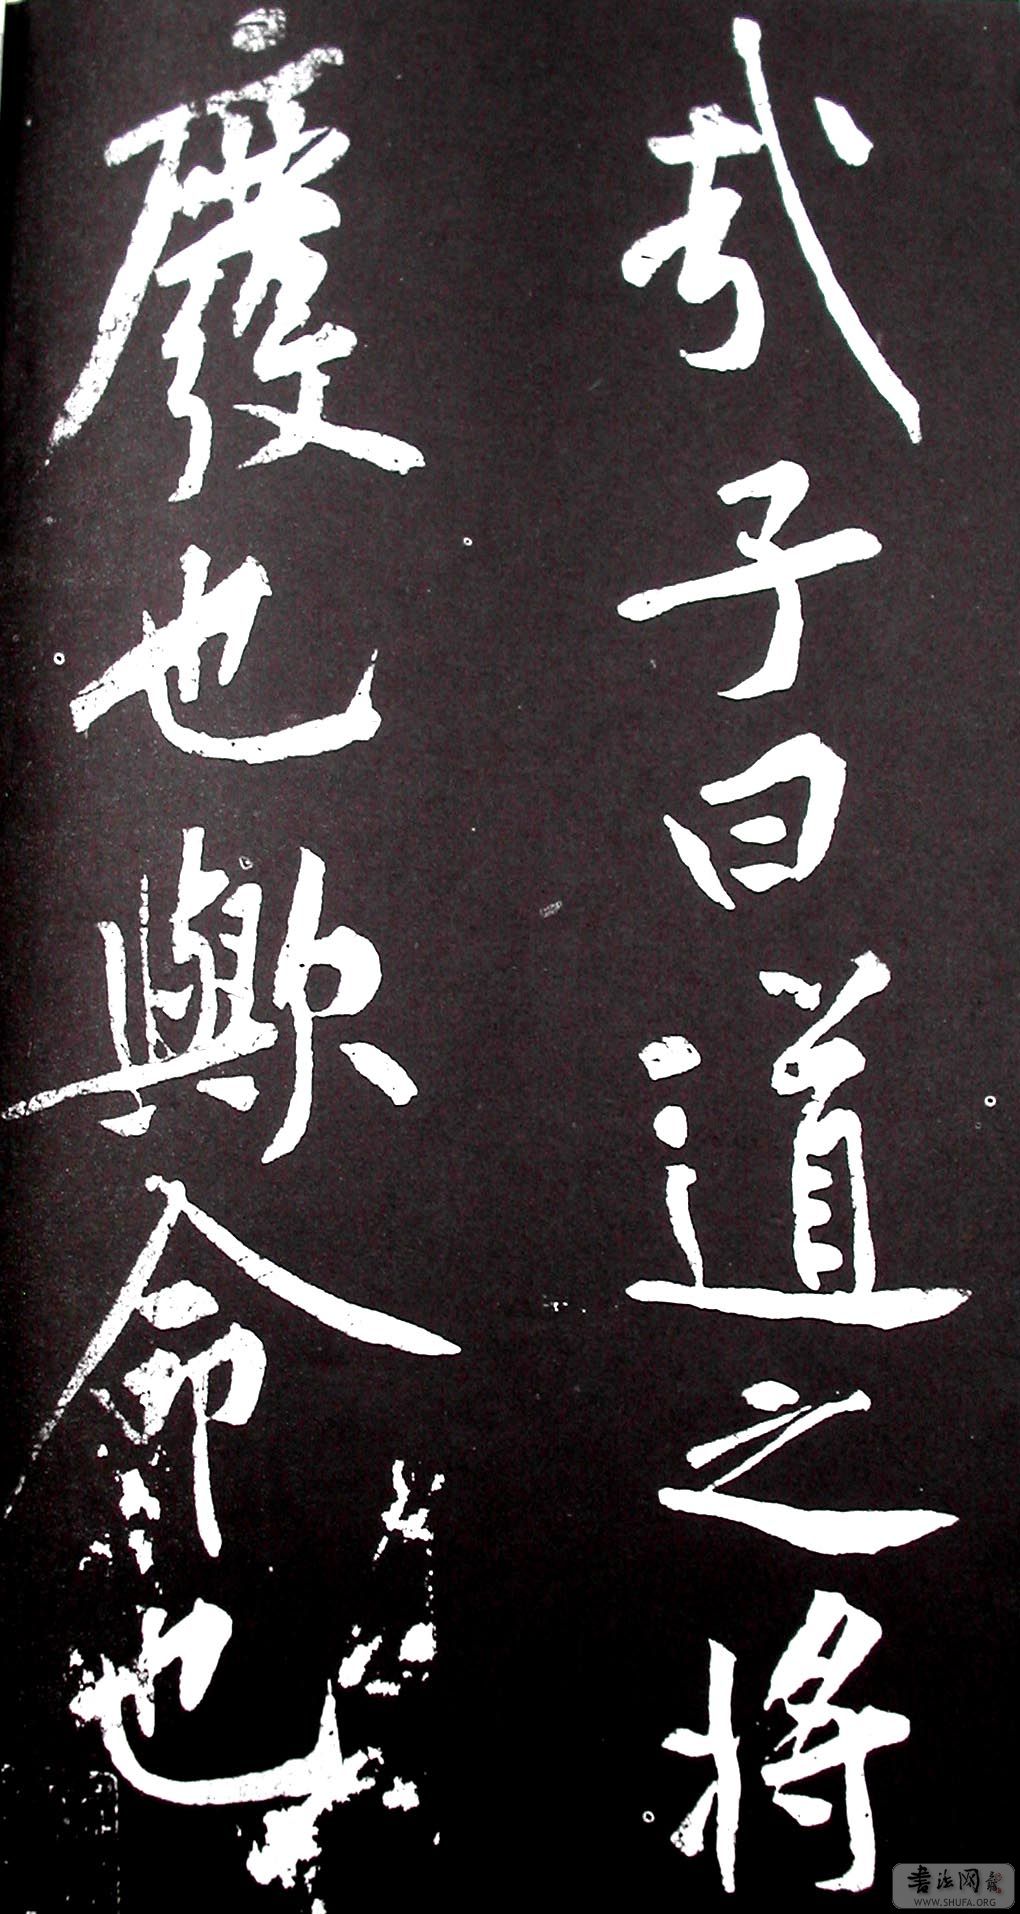 哉子曰道之将
廢也歟命也
書法网
WWW.SHUFA.ORG